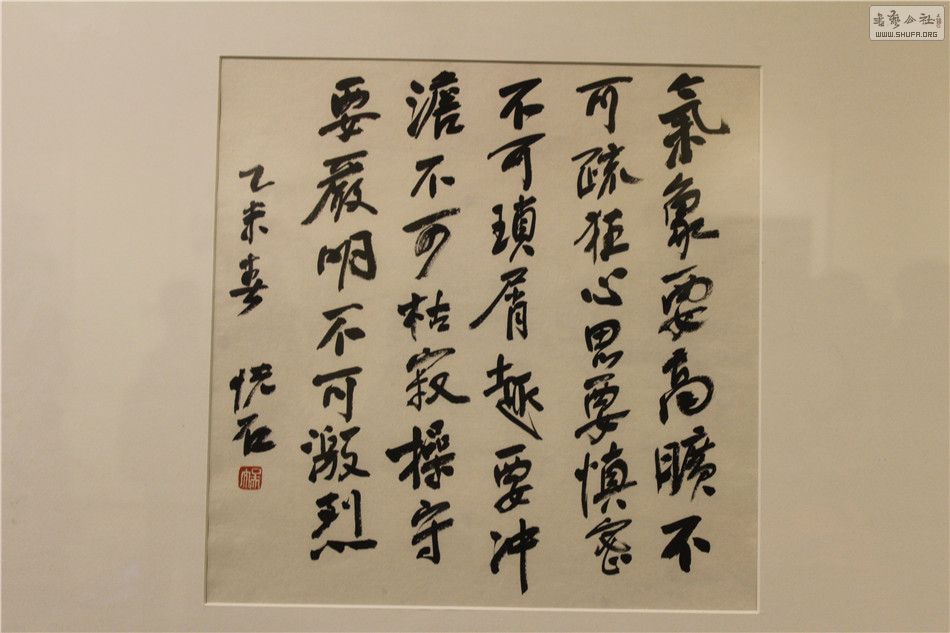 氣象要高曠不
可疏狂心思要慎密
不可瑣屑趣要冲
澹不可枯寂操守
要嚴明不可激烈
乙未春 恍石
書藝公社
WWW.SHUFA.ORG